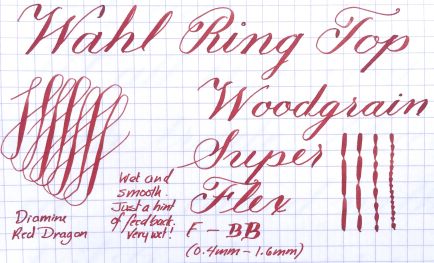 Wahl Ring Top
Woodgrain
Super
Flex
F - BB
(0.4mm - 1.6mm)
Wet and
smooth.
Just a hint
of feedback.
Very wet!
Diamine
Red Dragon